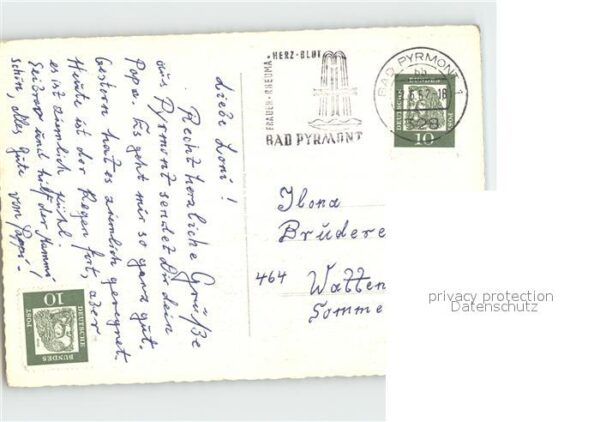 Liebe Loni!
Recht herzliche Grüße
aus Pyrmont sendet Dir dein
Papa. Es geht mir so ganz gut.
Gestern hat es ziemlich geregnet.
Heute ist der Regen fort, aber
es ist ziemlich kühl.
und hilf der Mammi
schön, alles Gute
von Pappi-!
HERZ-BLUT
FRAUEN-RHEUMA
BAD PYRMONT
BAD PYRMONT 1
328
DEUTSCHE
BUNDES
POST
10
Ilona
Brüdere
464 Watten
Somme
10
DEUTSCHE
BUNDES
POST
privacy protection
Datenschutz